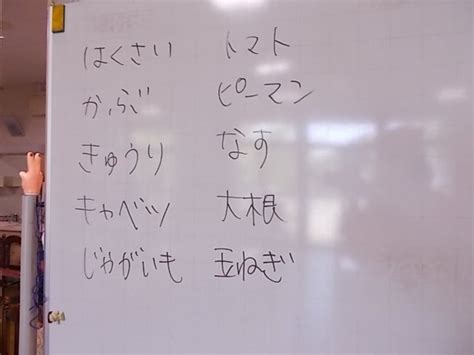 はくさい トマト
かぶ ピーマン
きゅうり なす
キャベツ 大根
じゃがいも 玉ねぎ